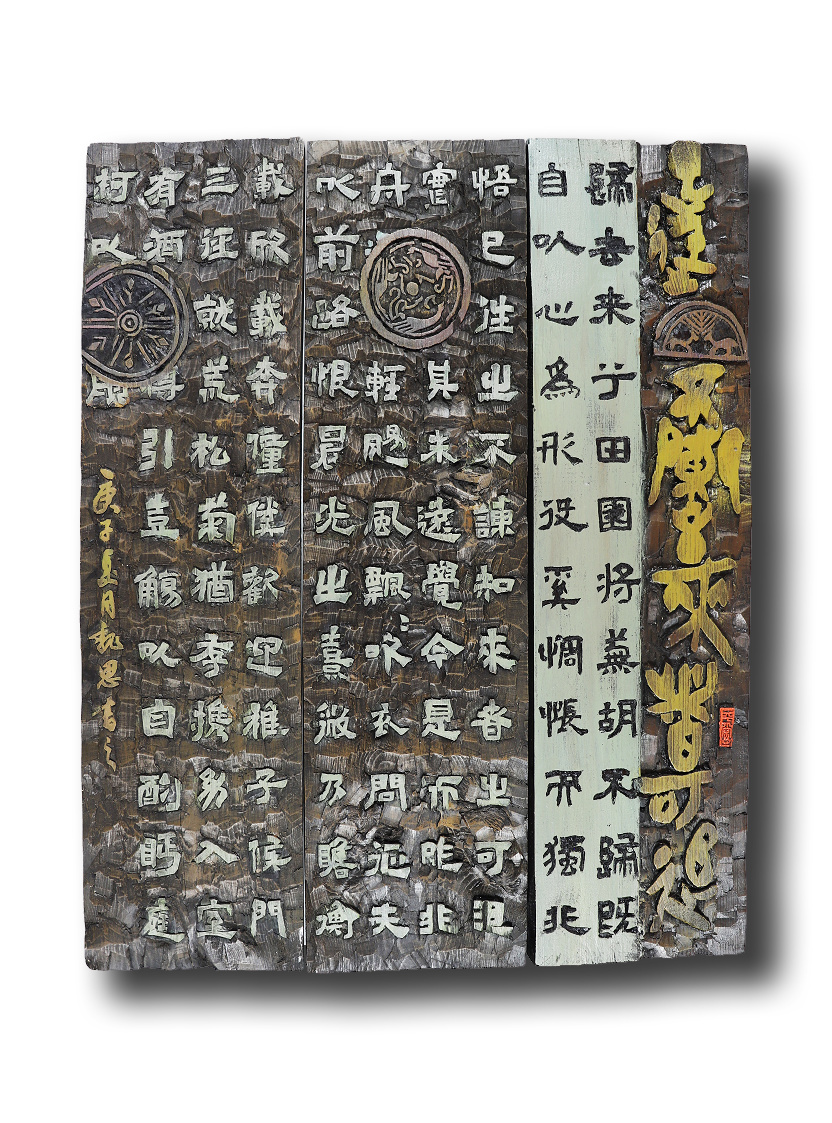 已往不諫來者可追
歸去來兮田園將蕪胡不歸既
自以心為形役奚惆悵而獨悲
悟已往之不諫知來者之可追
實其未遠覺今是而昨非
舟輕颺風飄〻吹衣問征夫
以前路恨晨光之熹微乃瞻衡
載欣載奔僮僕歡迎稚子候門
三徑就荒松菊猶存携幼入室
有酒引壺觴以自酌眄庭
柯以
庚子夏月執思書之